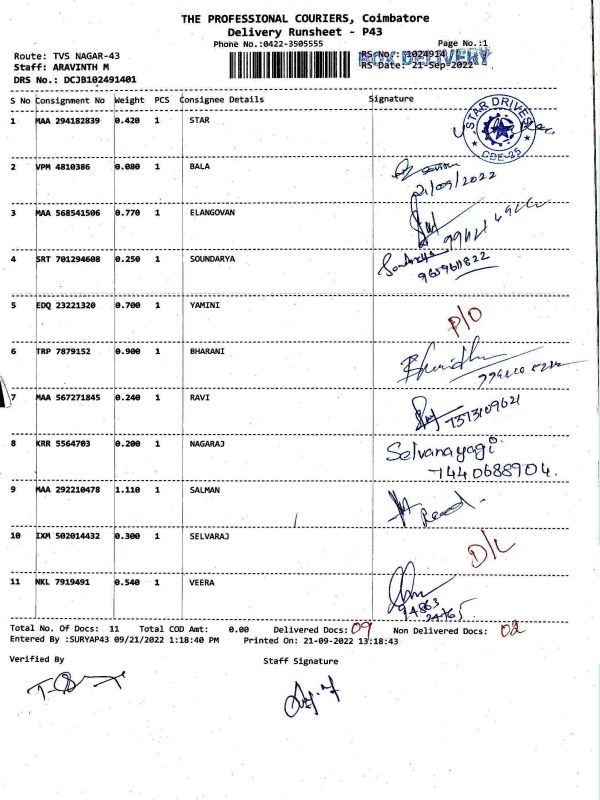 THE PROFESSIONAL COURIERS, Coimbatore
Delivery Runsheet - P43
Phone No.:0422-3505555 Page No.:1
Route: TVS NAGAR-43 RS No: 1024914 BOX DELIVERY
Staff: ARAVINTH M RS Date: 21-Sep-2022
DRS No.: DCJB102491401
S No Consignment No Weight PCS Consignee Details Signature
1 MAA 294182839 0.420 1 STAR STAR DRIVES CBE-25
2 VPM 4810386 0.080 1 BALA
21/09/2022
3 MAA 568541506 0.770 1 ELANGOVAN
4 SRT 701294608 0.250 1 SOUNDARYA Soundarya
9609611822
5 EDQ 23221320 0.700 1 YAMINI P/O
6 TRP 7879152 0.900 1 BHARANI
7 MAA 567271845 0.240 1 RAVI 7373109621
8 KRR 5564703 0.200 1 NAGARAJ Selvanayagi
7440688904.
9 MAA 292210478 1.110 1 SALMAN
10 IXM 502014432 0.300 1 SELVARAJ D/L
11 NKL 7919491 0.540 1 VEERA
94863
24465
Total No. Of Docs: 11 Total COD Amt: 0.00 Delivered Docs: 09 Non Delivered Docs: 02
Entered By :SURYAP43 09/21/2022 1:18:40 PM Printed On: 21-09-2022 13:18:43
Verified By Staff Signature